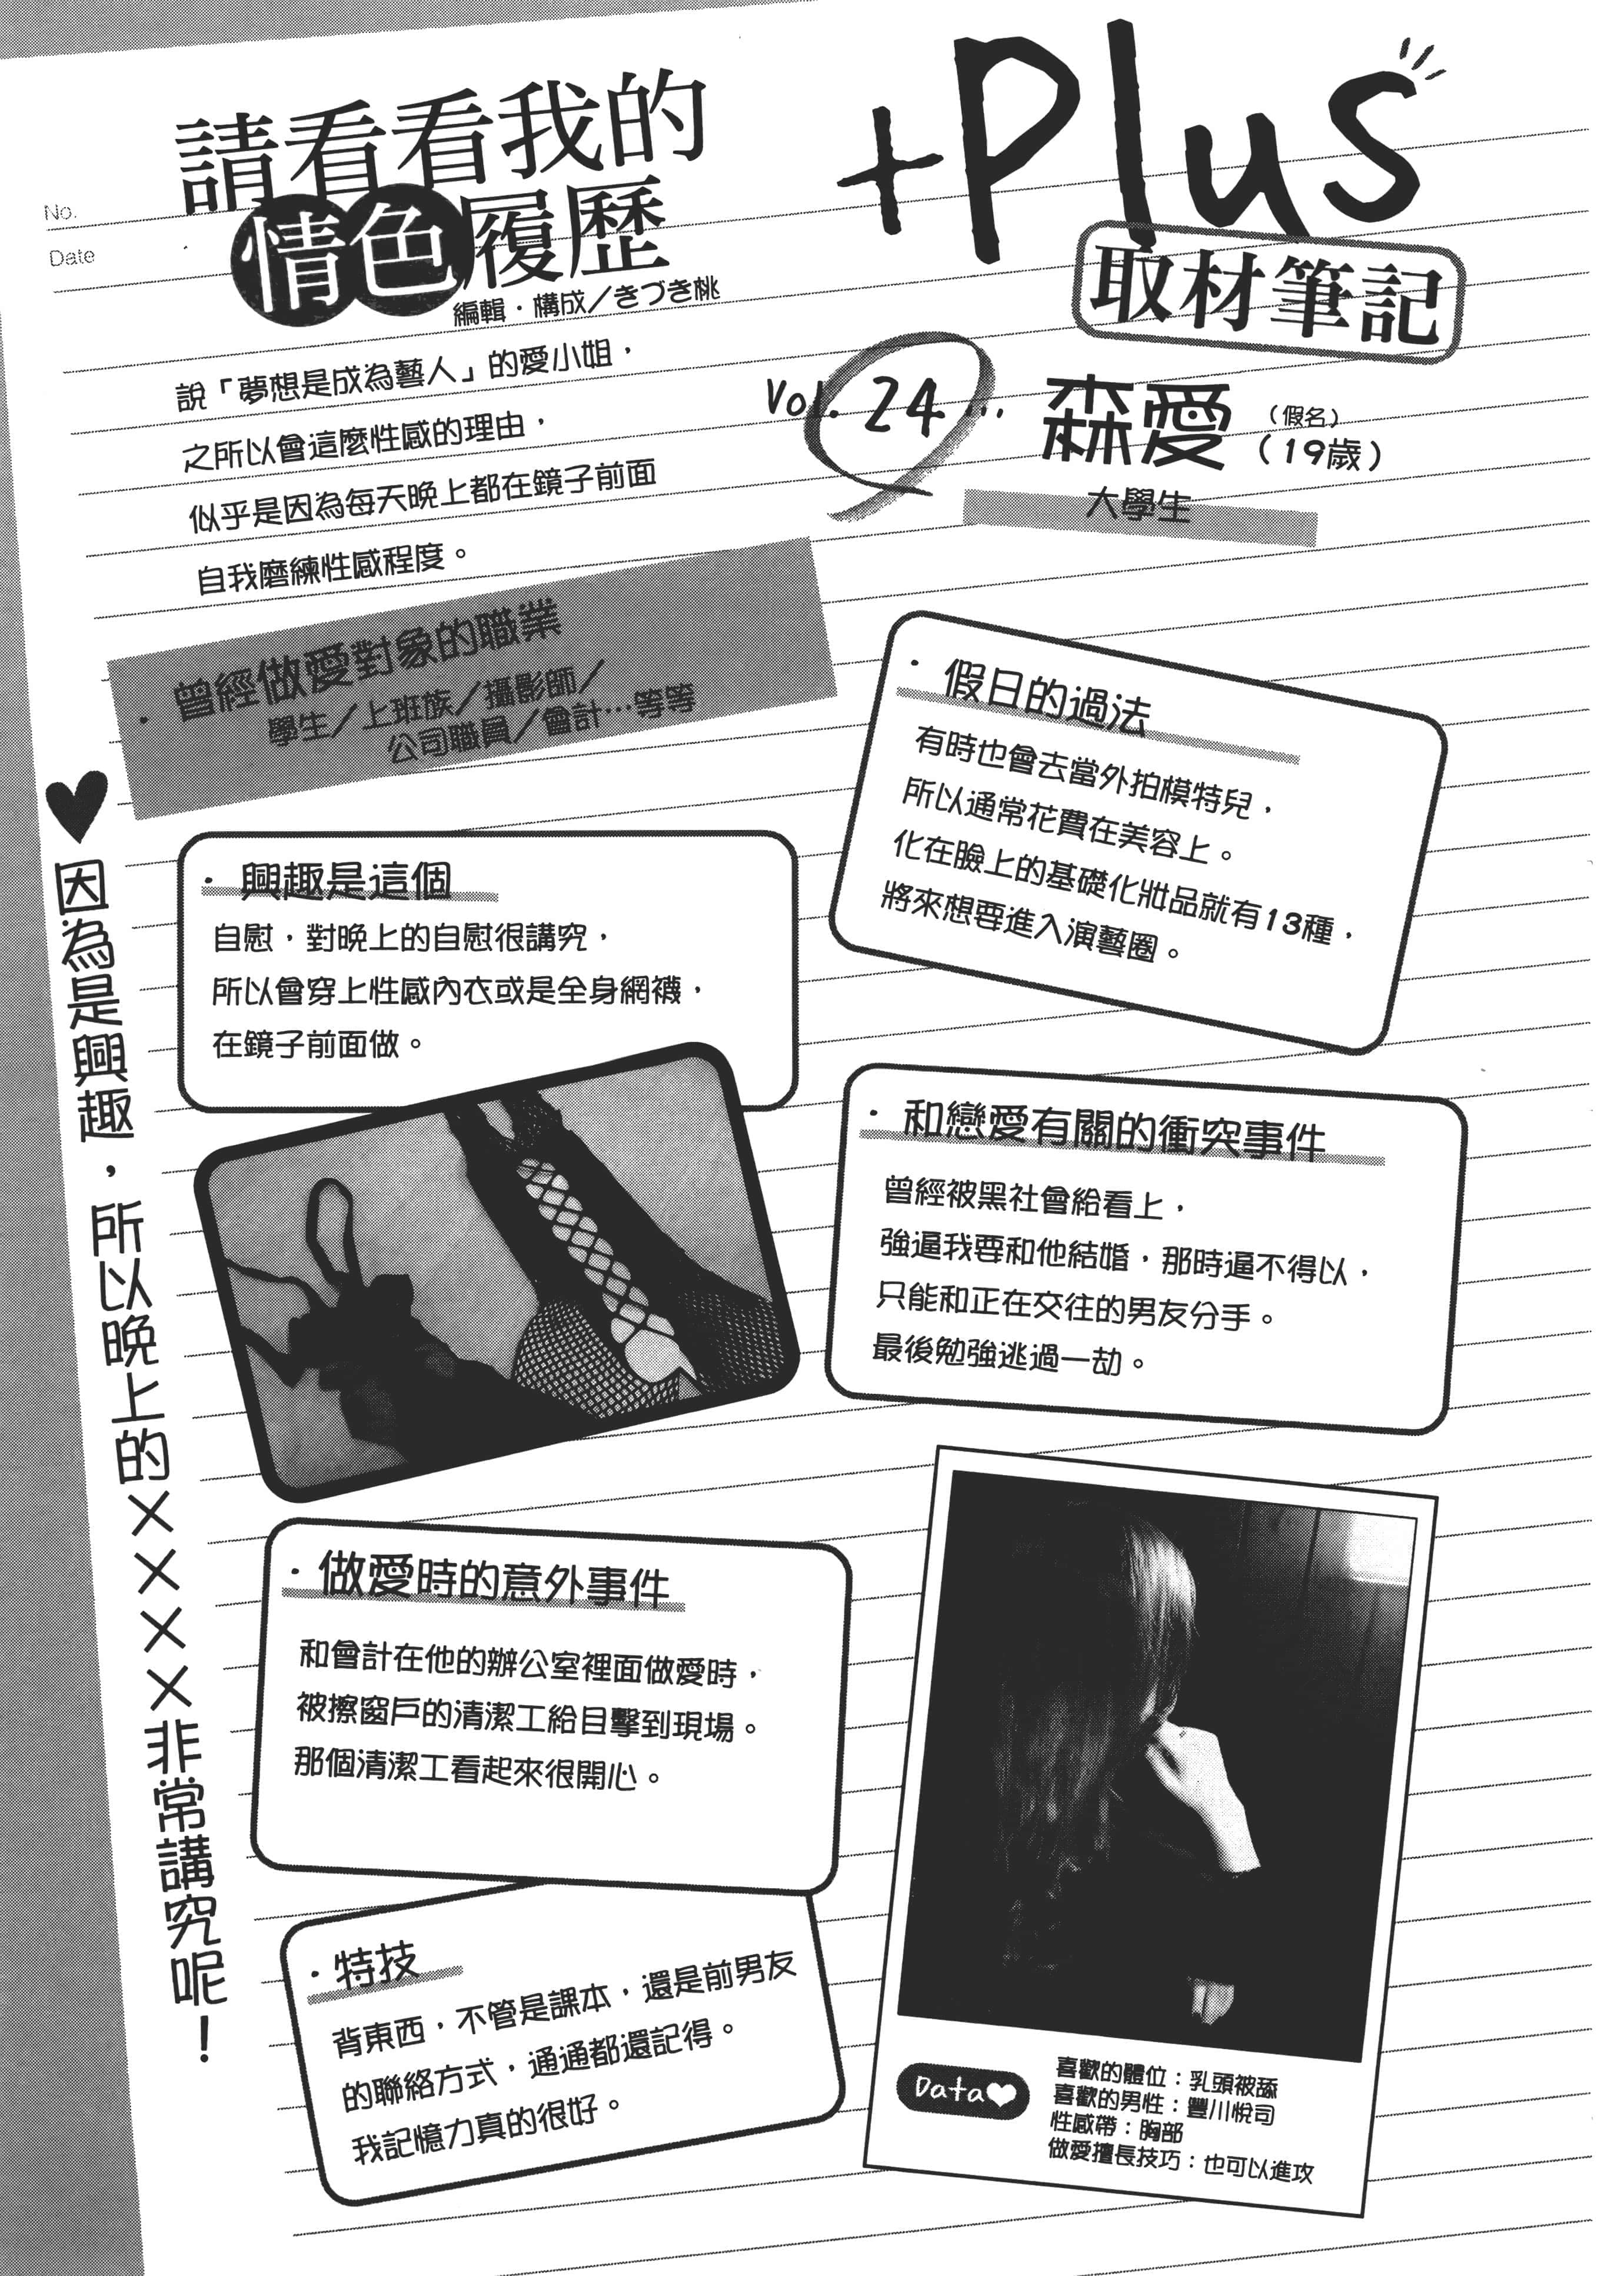 No.
Date
請看看我的
情色履歷
編輯・構成／きづき桃
+Plus
取材筆記
Vol. 24…
森愛（假名）
（19歲）
大學生
說「夢想是成為藝人」的愛小姐，
之所以會這麼性感的理由，
似乎是因為每天晚上都在鏡子前面
自我磨練性感程度。
・曾經做愛對象的職業
學生／上班族／攝影師／
公司職員／會計…等等
・假日的過法
有時也會去當外拍模特兒，
所以通常花費在美容上。
化在臉上的基礎化妝品就有13種，
將來想要進入演藝圈。
♥因為是興趣，所以晚上的××××非常講究呢！
・興趣是這個
自慰，對晚上的自慰很講究，
所以會穿上性感內衣或是全身網襪，
在鏡子前面做。
・和戀愛有關的衝突事件
曾經被黑社會給看上，
強逼我要和他結婚，那時逼不得以，
只能和正在交往的男友分手。
最後勉強逃過一劫。
・做愛時的意外事件
和會計在他的辦公室裡面做愛時，
被擦窗戶的清潔工給目擊到現場。
那個清潔工看起來很開心。
・特技
背東西，不管是課本，還是前男友
的聯絡方式，通通都還記得。
我記憶力真的很好。
Data♥
喜歡的體位：乳頭被舔
喜歡的男性：豐川悅司
性感帶：胸部
做愛擅長技巧：也可以進攻